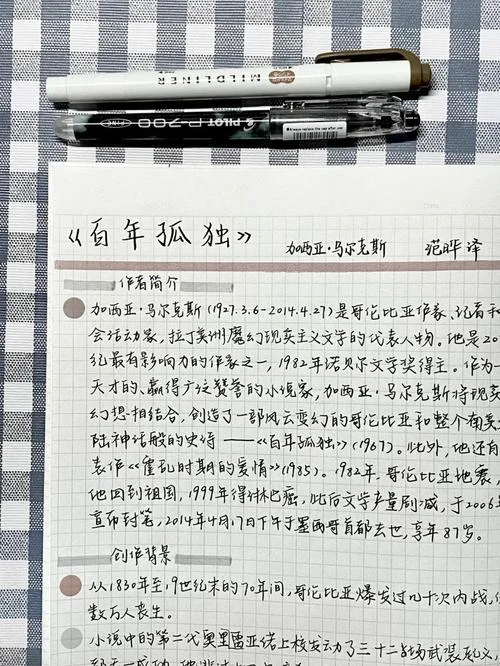 MILDLINER
PILOT P-700
Always replace the cap after use
《百年孤独》 加西亚·马尔克斯 范晔 译
作者简介
加西亚·马尔克斯(1927.3.6-2014.4.27)是哥伦比亚作家、记者和
会活动家,拉丁美洲魔幻现实主义文学的代表人物。他是20
纪最有影响力的作家之一,1982年诺贝尔文学奖得主。作为一
天才的、赢得广泛赞誉的小说家,加西亚·马尔克斯将现实
幻想相结合,创造了一部风云变幻的哥伦比亚和整个南美
陆神话般的史诗——《百年孤独》(1967)。此外,他还有
表作《霍乱时期的爱情》(1985)。1982年,哥伦比亚地震,
他回到祖国,1999年得淋巴癌,此后文学产量剧减,于2006年
宣布封笔,2014年4月17日下午于墨西哥首都去世,享年87岁。
创作背景
从1830年至19世纪末的70年间,哥伦比亚爆发过几十次内战,
数万人丧生。
小说中的第二代奥里雷亚诺上校发动了三十二场武装起义,